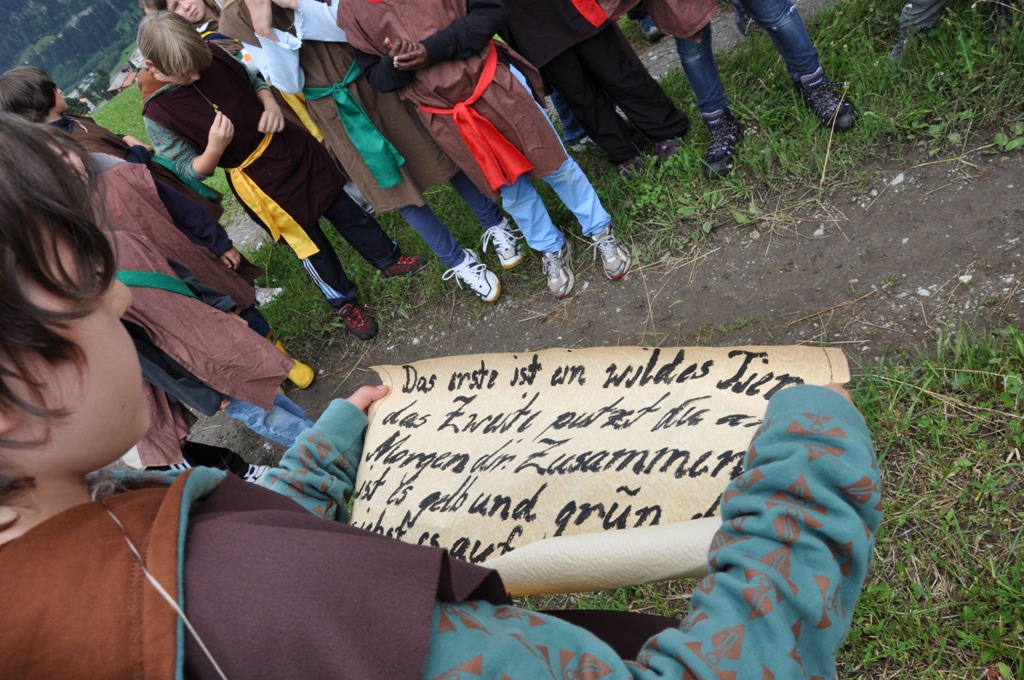 Das erste ist ein wildes Tier
das Zweite putzst du a
Morgen dir. Zusammen
ist es gelb und grün d
auf